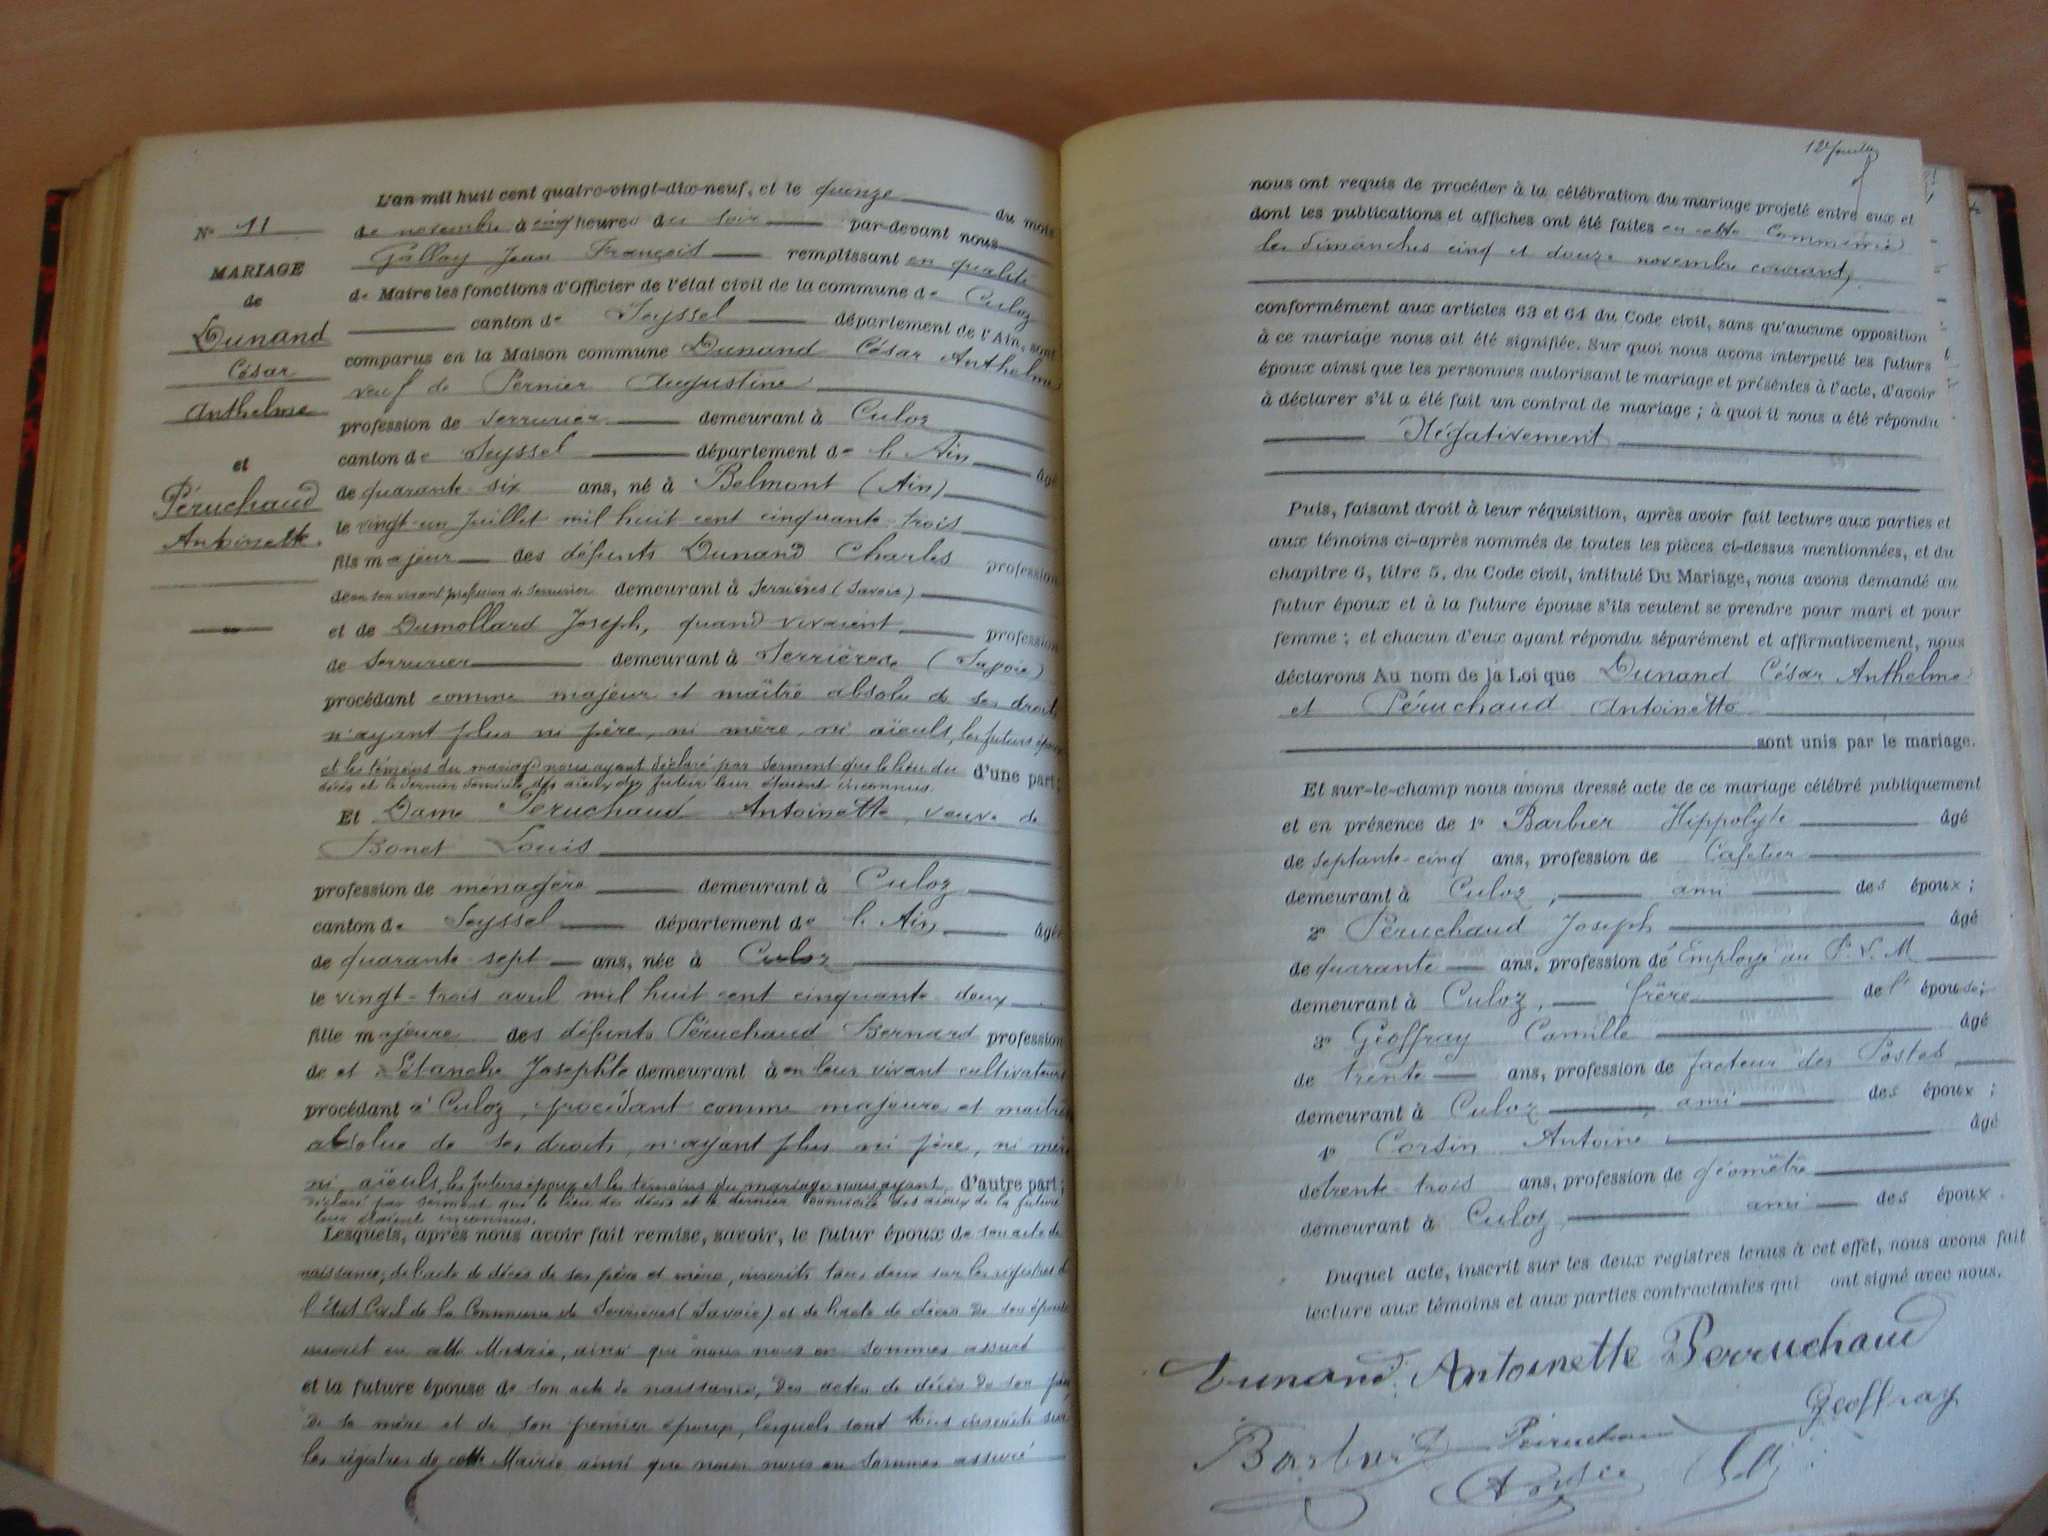 N° 11
MARIAGE
de
Dunand
César
Anthelme
et
Péruchaud
Antoinette.
L'an mil huit cent quatre-vingt-dix-neuf, et le quinze du mois
de novembre à cinq heures du soir par-devant nous
Gallay Jean François remplissant en qualité
de Maire les fonctions d'Officier de l'état civil de la commune de Culoz
canton de Seyssel département de l'Ain, sont
comparus en la Maison commune Dunand César Anthelme
veuf de Pernier Augustine
profession de serrurier demeurant à Culoz
canton de Seyssel département de l'Ain âgé
de quarante-six ans, né à Belmont (Ain)
le vingt-un juillet mil huit cent cinquante-trois
fils majeur des défunts Dunand Charles profession
de en son vivant profession de serrurier demeurant à Serrières (Savoie)
et de Dumollard Joseph, quand vivaient profession
de serrurier demeurant à Serrières (Savoie)
procédant comme majeur et maître absolu de ses droits
n'ayant plus ni père, ni mère, ni aïeuls, les futurs époux
et les témoins du mariage nous ayant déclaré par serment que le lieu du d'une part;
décès et le dernier domicile des aïeux du futur leur étaient inconnus.
Et Dame Péruchaud Antoinette, veuve de
Bonet Louis
profession de ménagère demeurant à Culoz
canton de Seyssel département de l'Ain âgée
de quarante-sept ans, née à Culoz
le vingt-trois avril mil huit cent cinquante-deux
fille majeure des défunts Péruchaud Bernard profession
de et Létanche Josephte demeurant à en leur vivant cultivateurs
procédant à Culoz, procédant comme majeure et maître
absolue de ses droits, n'ayant plus ni père, ni mère
ni aïeuls, les futurs époux et les témoins du mariage nous ayant d'autre part;
déclaré par serment que le lieu des décès et le dernier domicile des aïeux de la future
leur étaient inconnus.
Lesquels, après nous avoir fait remise, savoir, le futur époux de son acte de
naissance, de l'acte de décès de ses père et mère, inscrits tous deux sur les registres de
l'Etat Civil de la Commune de Serrières (Savoie) et de l'acte de décès de son épouse
inscrit en cette Mairie, ainsi que nous nous en sommes assuré
et la future épouse de son acte de naissance, des actes de décès de son père
de sa mère et de son premier époux, lesquels sont tous inscrits sur
les registres de cette Mairie ainsi que nous nous en sommes assuré
12e feuillet
nous ont requis de procéder à la célébration du mariage projeté entre eux et
dont les publications et affiches ont été faites en cette Commune
les dimanches cinq et douze novembre courant,
conformément aux articles 63 et 64 du Code civil, sans qu'aucune opposition
à ce mariage nous ait été signifiée. Sur quoi nous avons interpellé les futurs
époux ainsi que les personnes autorisant le mariage et présentes à l'acte, d'avoir
à déclarer s'il a été fait un contrat de mariage; à quoi il nous a été répondu
Négativement
Puis, faisant droit à leur réquisition, après avoir fait lecture aux parties et
aux témoins ci-après nommés de toutes les pièces ci-dessus mentionnées, et du
chapitre 6, titre 5, du Code civil, intitulé Du Mariage, nous avons demandé au
futur époux et à la future épouse s'ils veulent se prendre pour mari et pour
femme; et chacun d'eux ayant répondu séparément et affirmativement, nous
déclarons Au nom de la Loi que Dunand César Anthelme
et Péruchaud Antoinette
sont unis par le mariage.
Et sur-le-champ nous avons dressé acte de ce mariage célébré publiquement
et en présence de 1° Barbier Hippolyte âgé
de septante-cinq ans, profession de Cafetier
demeurant à Culoz, ami des époux;
2° Péruchaud Joseph âgé
de quarante ans, profession de Employé au P. L. M.
demeurant à Culoz, frère de l'épouse;
3° Geoffray Camille âgé
de trente ans, profession de facteur des Postes
demeurant à Culoz, ami des époux;
4° Corsin Antoine âgé
de trente-trois ans, profession de géomètre
demeurant à Culoz, ami des époux.
Duquel acte, inscrit sur les deux registres tenus à cet effet, nous avons fait
lecture aux témoins et aux parties contractantes qui ont signé avec nous.
Dunand Antoinette Perruchaud
Barbier Péruchaud Geoffray